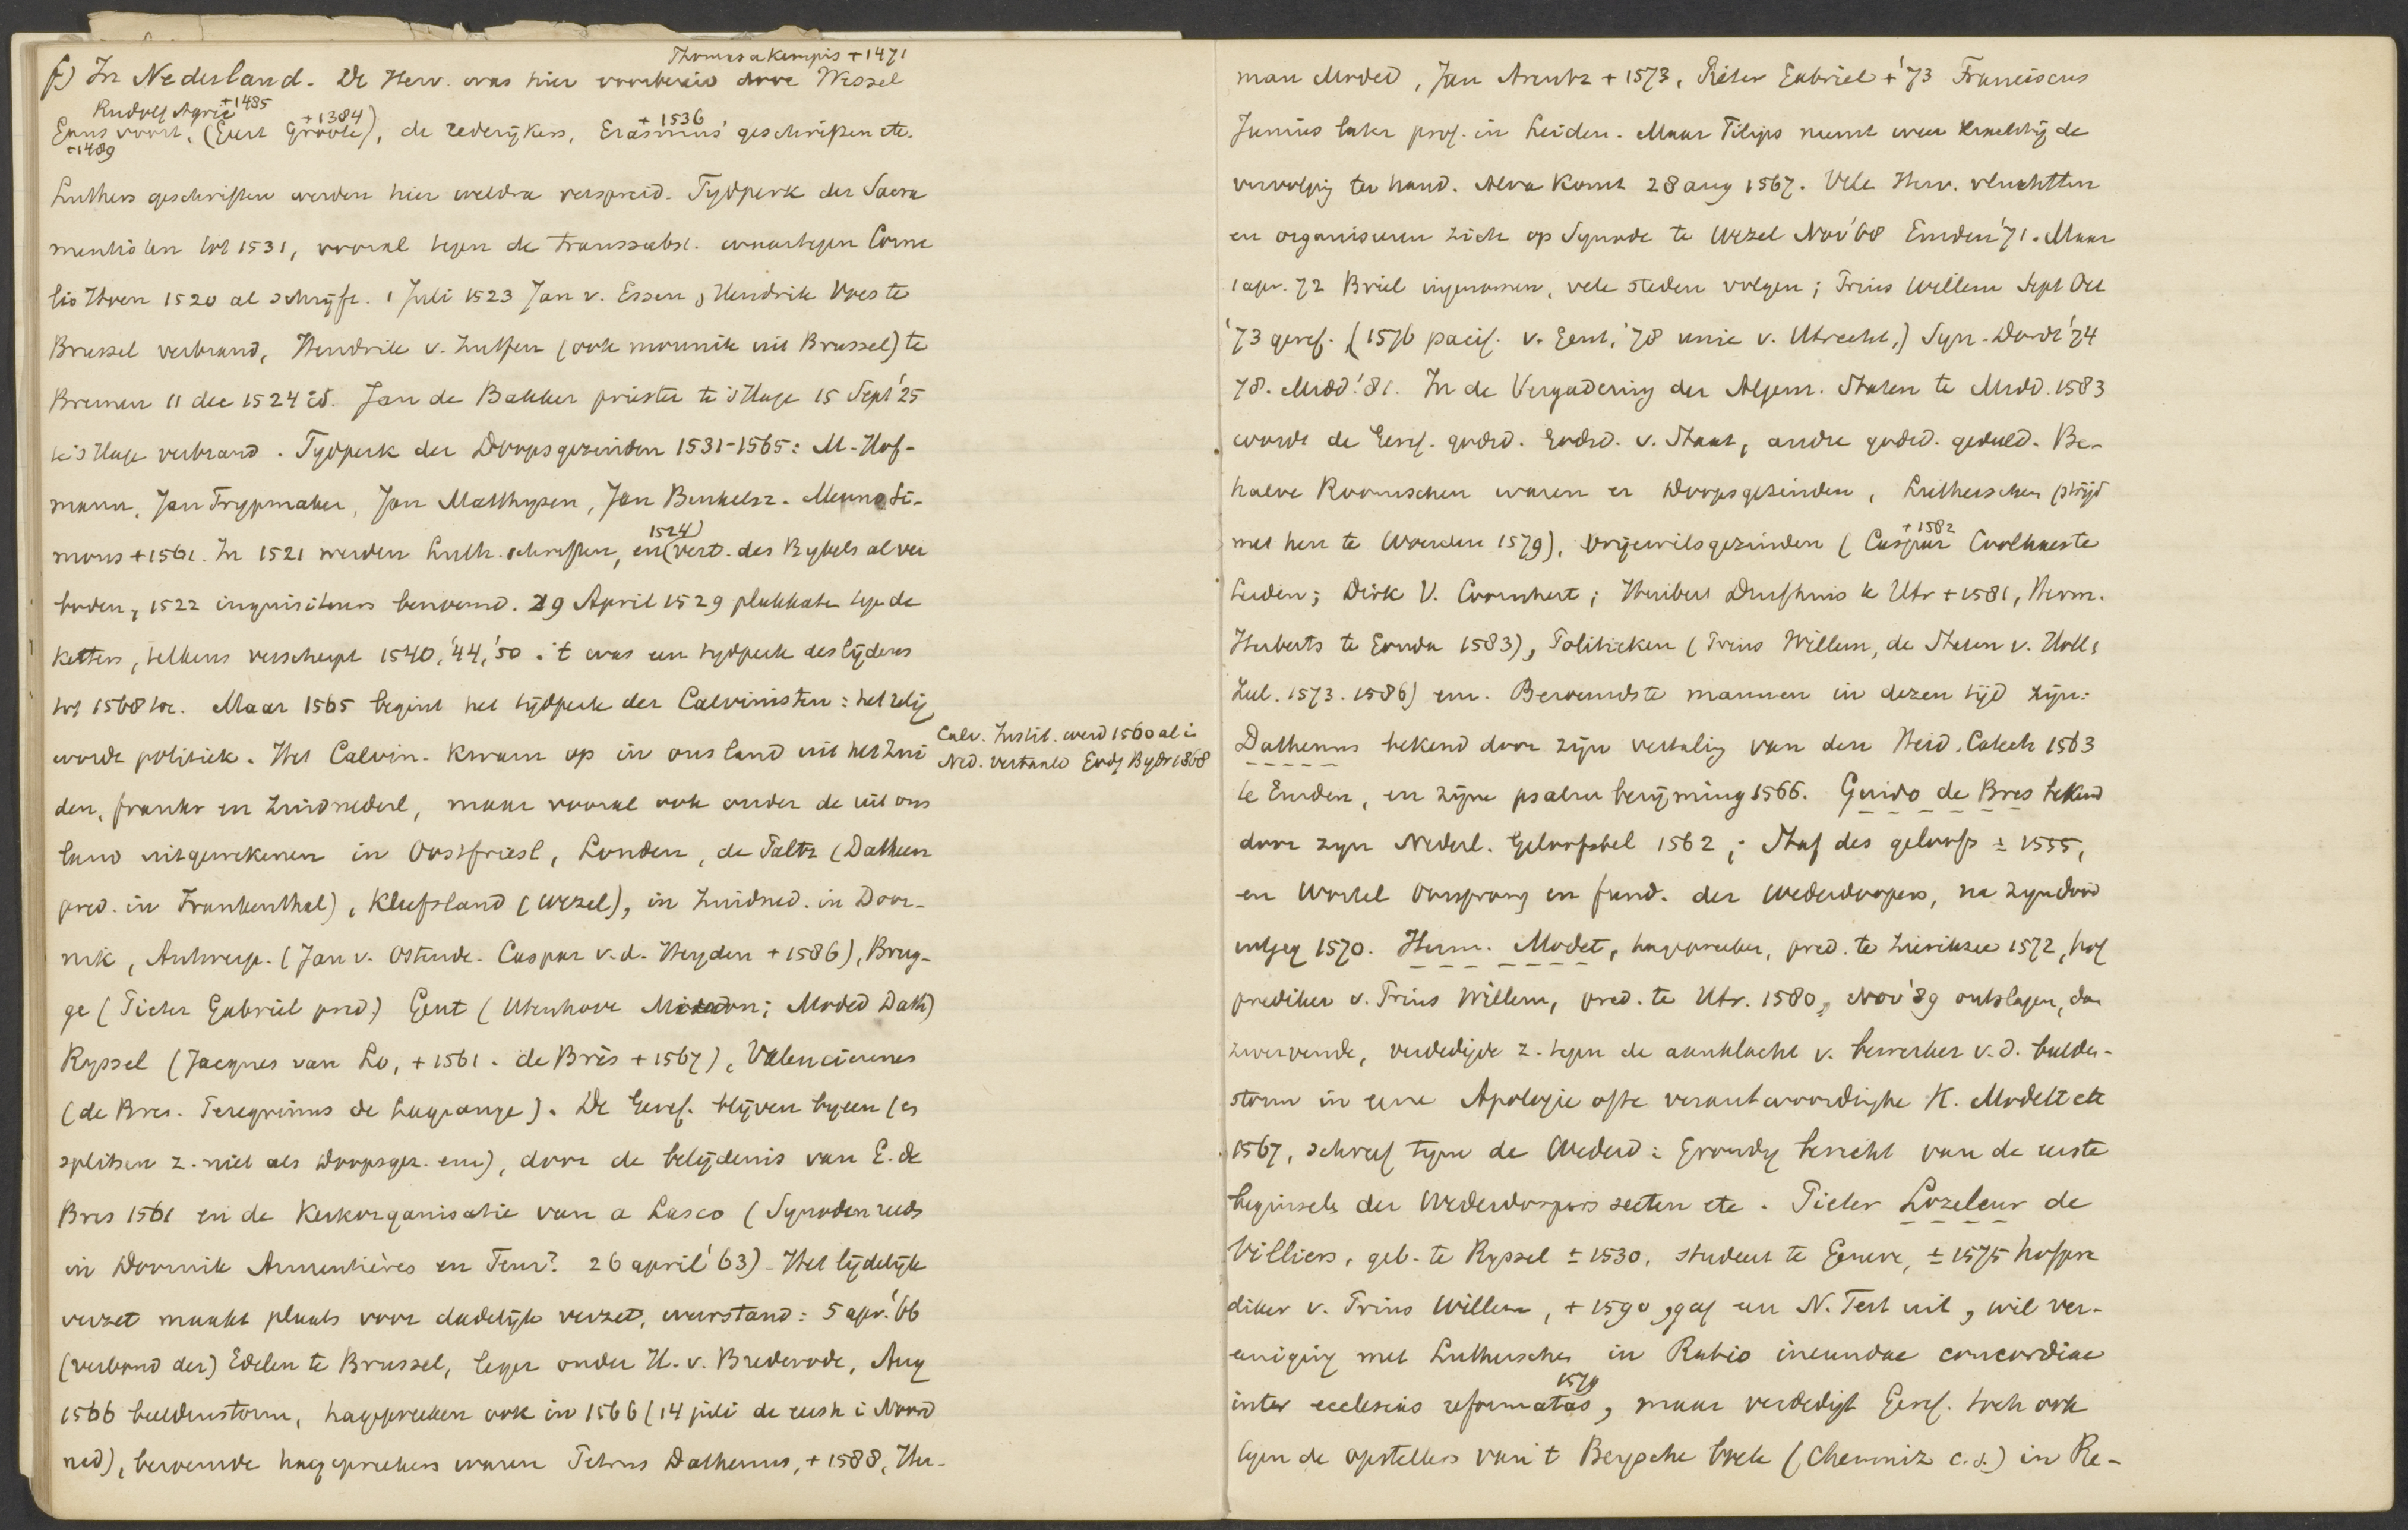 Thomas a Kempis + 1471
f) In Nederland. De Herv. was hier voorbereid door Wessel
Rudolf Agric + 1485
+ 1384
+ 1536
Gansvoort, (Geert Groote), de rederijkers, Erasmus' geschriften etc.
+ 1489
Luthers geschriften werden hier weldra verspreid. Tydperk der Sacra
mentisten tot 1531, vooral tegen de transsubst. waartegen Corne
lis Hoen 1520 al schrijft. 1 Juli 1523 Jan v. Essen, Hendrik Voes te
Brussel verbrand, Hendrik v. Zutfen (ook monnik uit Brussel) te
Bremen 11 dec 1524 id. Jan de Bakker priester te 's Hage 15 Sept '25
te 's Hage verbrand. Tydperk der Doopsgezinden 1531-1565: M. Hof-
mann, Jan Trypmaker, Jan Matthysen, Jan Benkelsz. Menno Si-
1524)
mons + 1561. In 1521 werden Luth. schriften, en (vert. des Bybels al ver
boden, 1522 inquisiteurs benoemd. 29 April 1529 plakkaten tege de
ketters, telkens verscherpt 1540, '44, '50. 't was een tydperk des lijdens
tot 1568 toe. Maar 1565 begint het tijdperk der Calvinisten: het relig
wordt politiek. Het Calvin. kwam op in ons land uit het Zui
Calv. Instit. werd 1560 al i
Ned. vertaald Godg Bydr 1868
den, frankr en Zuidnederl, maar vooral ook onder de uit ons
land uitgewekenen in Oostfriesl, Londen, de Paltz (Datheen
pred. in Frankenthal), Kleefsland (Wezel), in Zuidned. in Door-
nik, Antwerp. (Jan v. Ostende. Caspar v.d. Heyden + 1586), Brug-
ge (Pieter Gabriël pred) Gent (Utenhove Micron; Moded Dath)
Ryssel (Jacques van Lo, + 1561. de Brès + 1567), Valenciennes
(de Bres. Peregrinus de Lagrange). De Geref. blijven byeen (es
splitsen z. niet als Doopsgez. enz), door de belijdenis van G. de
Bres 1561 en de Kerkorganisatie van a Lasco (Synoden reeds
in Doornik Armentières en Teur? 26 april '63). Het lijdelijk
verzet maakt plaats voor dadelijk verzet, weerstand: 5 apr. '66
(verbond der) Edelen te Brussel, leger onder H. v. Brederode, Aug
1566 beeldenstorm, hagepreeken ook in 1566 (14 juli de eerste i Noord
ned), beroemde hageprekers waren Petrus Dathenus, + 1588, Her-
man Moded, Jan Arentz + 1573, Pieter Gabriel + '73 Franciscus
Junius later prof. in Leiden. Maar Filips neemt weer krachtig de
vervolgig ter hand. Alva komt 28 aug 1567. Vele Herv. vluchtten
en organiseren zich op Synode te Wezel Nov '68 Emden '71. Maar
1 apr. 72 Briel ingenomen, vele steden volgen; Prins Willem Sept Oct
'73 geref. (1576 pacif. v. Gent, '78 unie v. Utrecht,) Syn. Dordt '74
78. Midd. '81. In de Vergadering der Algem. Staten te Midd. 1583
wordt de Geref. godsd. Godsd. v. Staat, andre godsd. geduld. Be-
halve Roomschen waren er Doopsgezinden, Lutherschen (strijd
+ 1582
met hen te Woerden 1579), Vrijewilsgezinden (Caspar Coolhaes te
Leiden; Dirk V. Coornhert; Huibert Duifhuis te Utr + 1581, Herm.
Herberts te Gouda 1583), Politieken (Prins Willem, de Staten v. Holl &
Zeel. 1573. 1586) enz. Beroemdste mannen in dezen tijd zijn:
Dathenus bekend door zijn vertalig van den Heid. Catech 1563
te Emden, en zijne psalmberijming 1566. Guido de Bres bekend
door zyn Nederl. Geloofsbel 1562; Staf des geloofs ± 1555,
en Wortel oorsprong en fund. der Wederdoopers, na zyn dood
uitgeg 1570. Herm. Modet, hagepreeker, pred. te Zierikzee 1572, hof
prediker v. Prins Willem, pred. te Utr. 1580, Nov '89 ontslagen, da
zwervende, verdedigde z. tegen de aanklacht v. bewerker v.d. beelden-
storm in eene Apologie ofte verantwoordinghe H. Modett etc
1567, schreef tegen de Wederd: Grondig bericht van de eerste
beginselen der Wederdoopers secten etc. Pieter Lozeleur de
Villiers, geb. te Ryssel ± 1530, student te Geneve, ± 1575 hofpre
diker v. Prins Willem, + 1590, gaf een N. Test uit, wil ver-
eeniging met Lutherschen in Ratio ineundae concordiae
1579
inter ecclesias reformatas, maar verdedigt Geref. toch ook
tegen de opstellers van 't Bergsche boek (Chemniz c.s.) in Re-